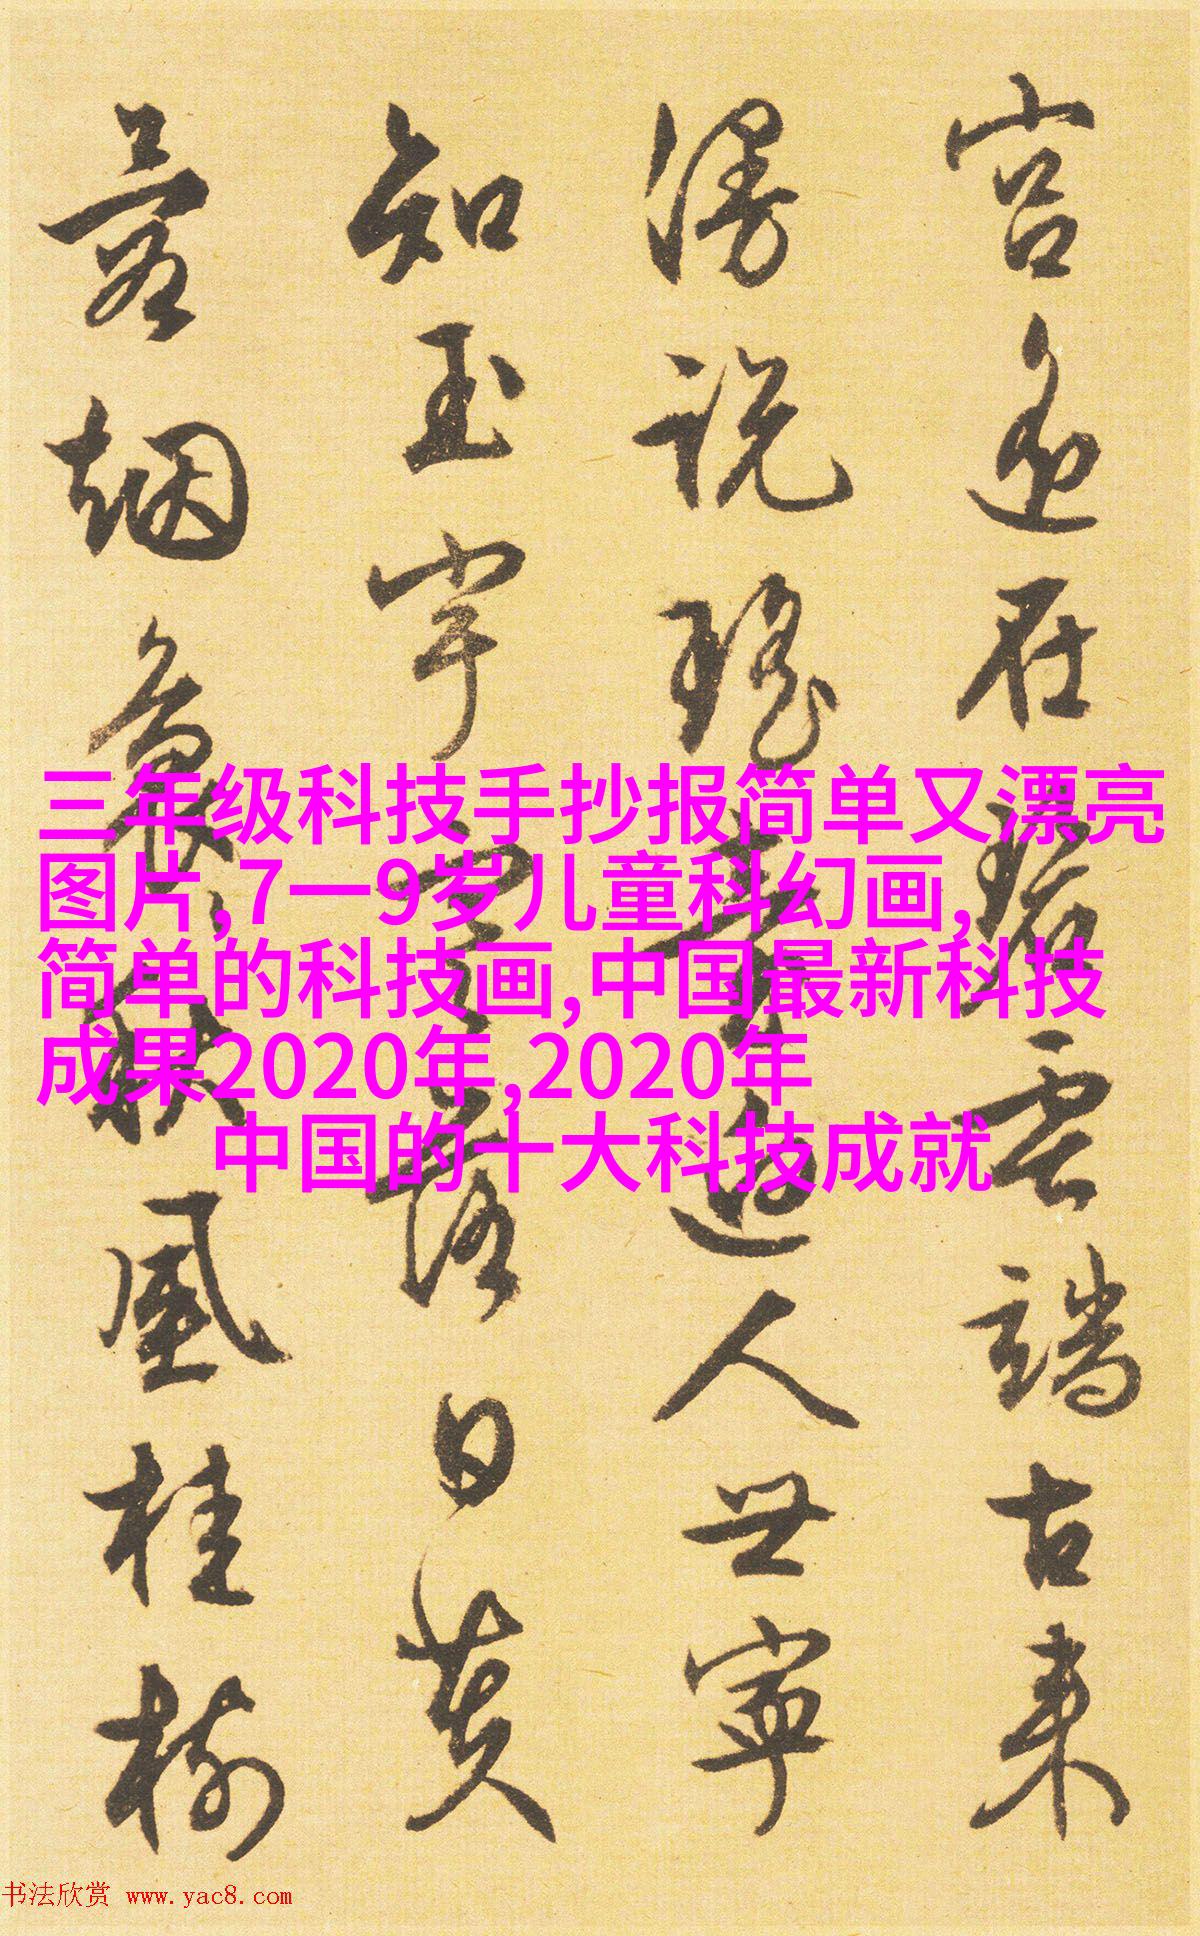 宫在碧雲端古来
漫説瑶臺人世寧
知玉宇落日黄
烟秋風桂樹
三年级科技手抄报简单又漂亮
图片,7一9岁儿童科幻画,
简单的科技画,中国最新科技
成果2020年,2020年
中国的十大科技成就
书法欣赏 www.yac8.com